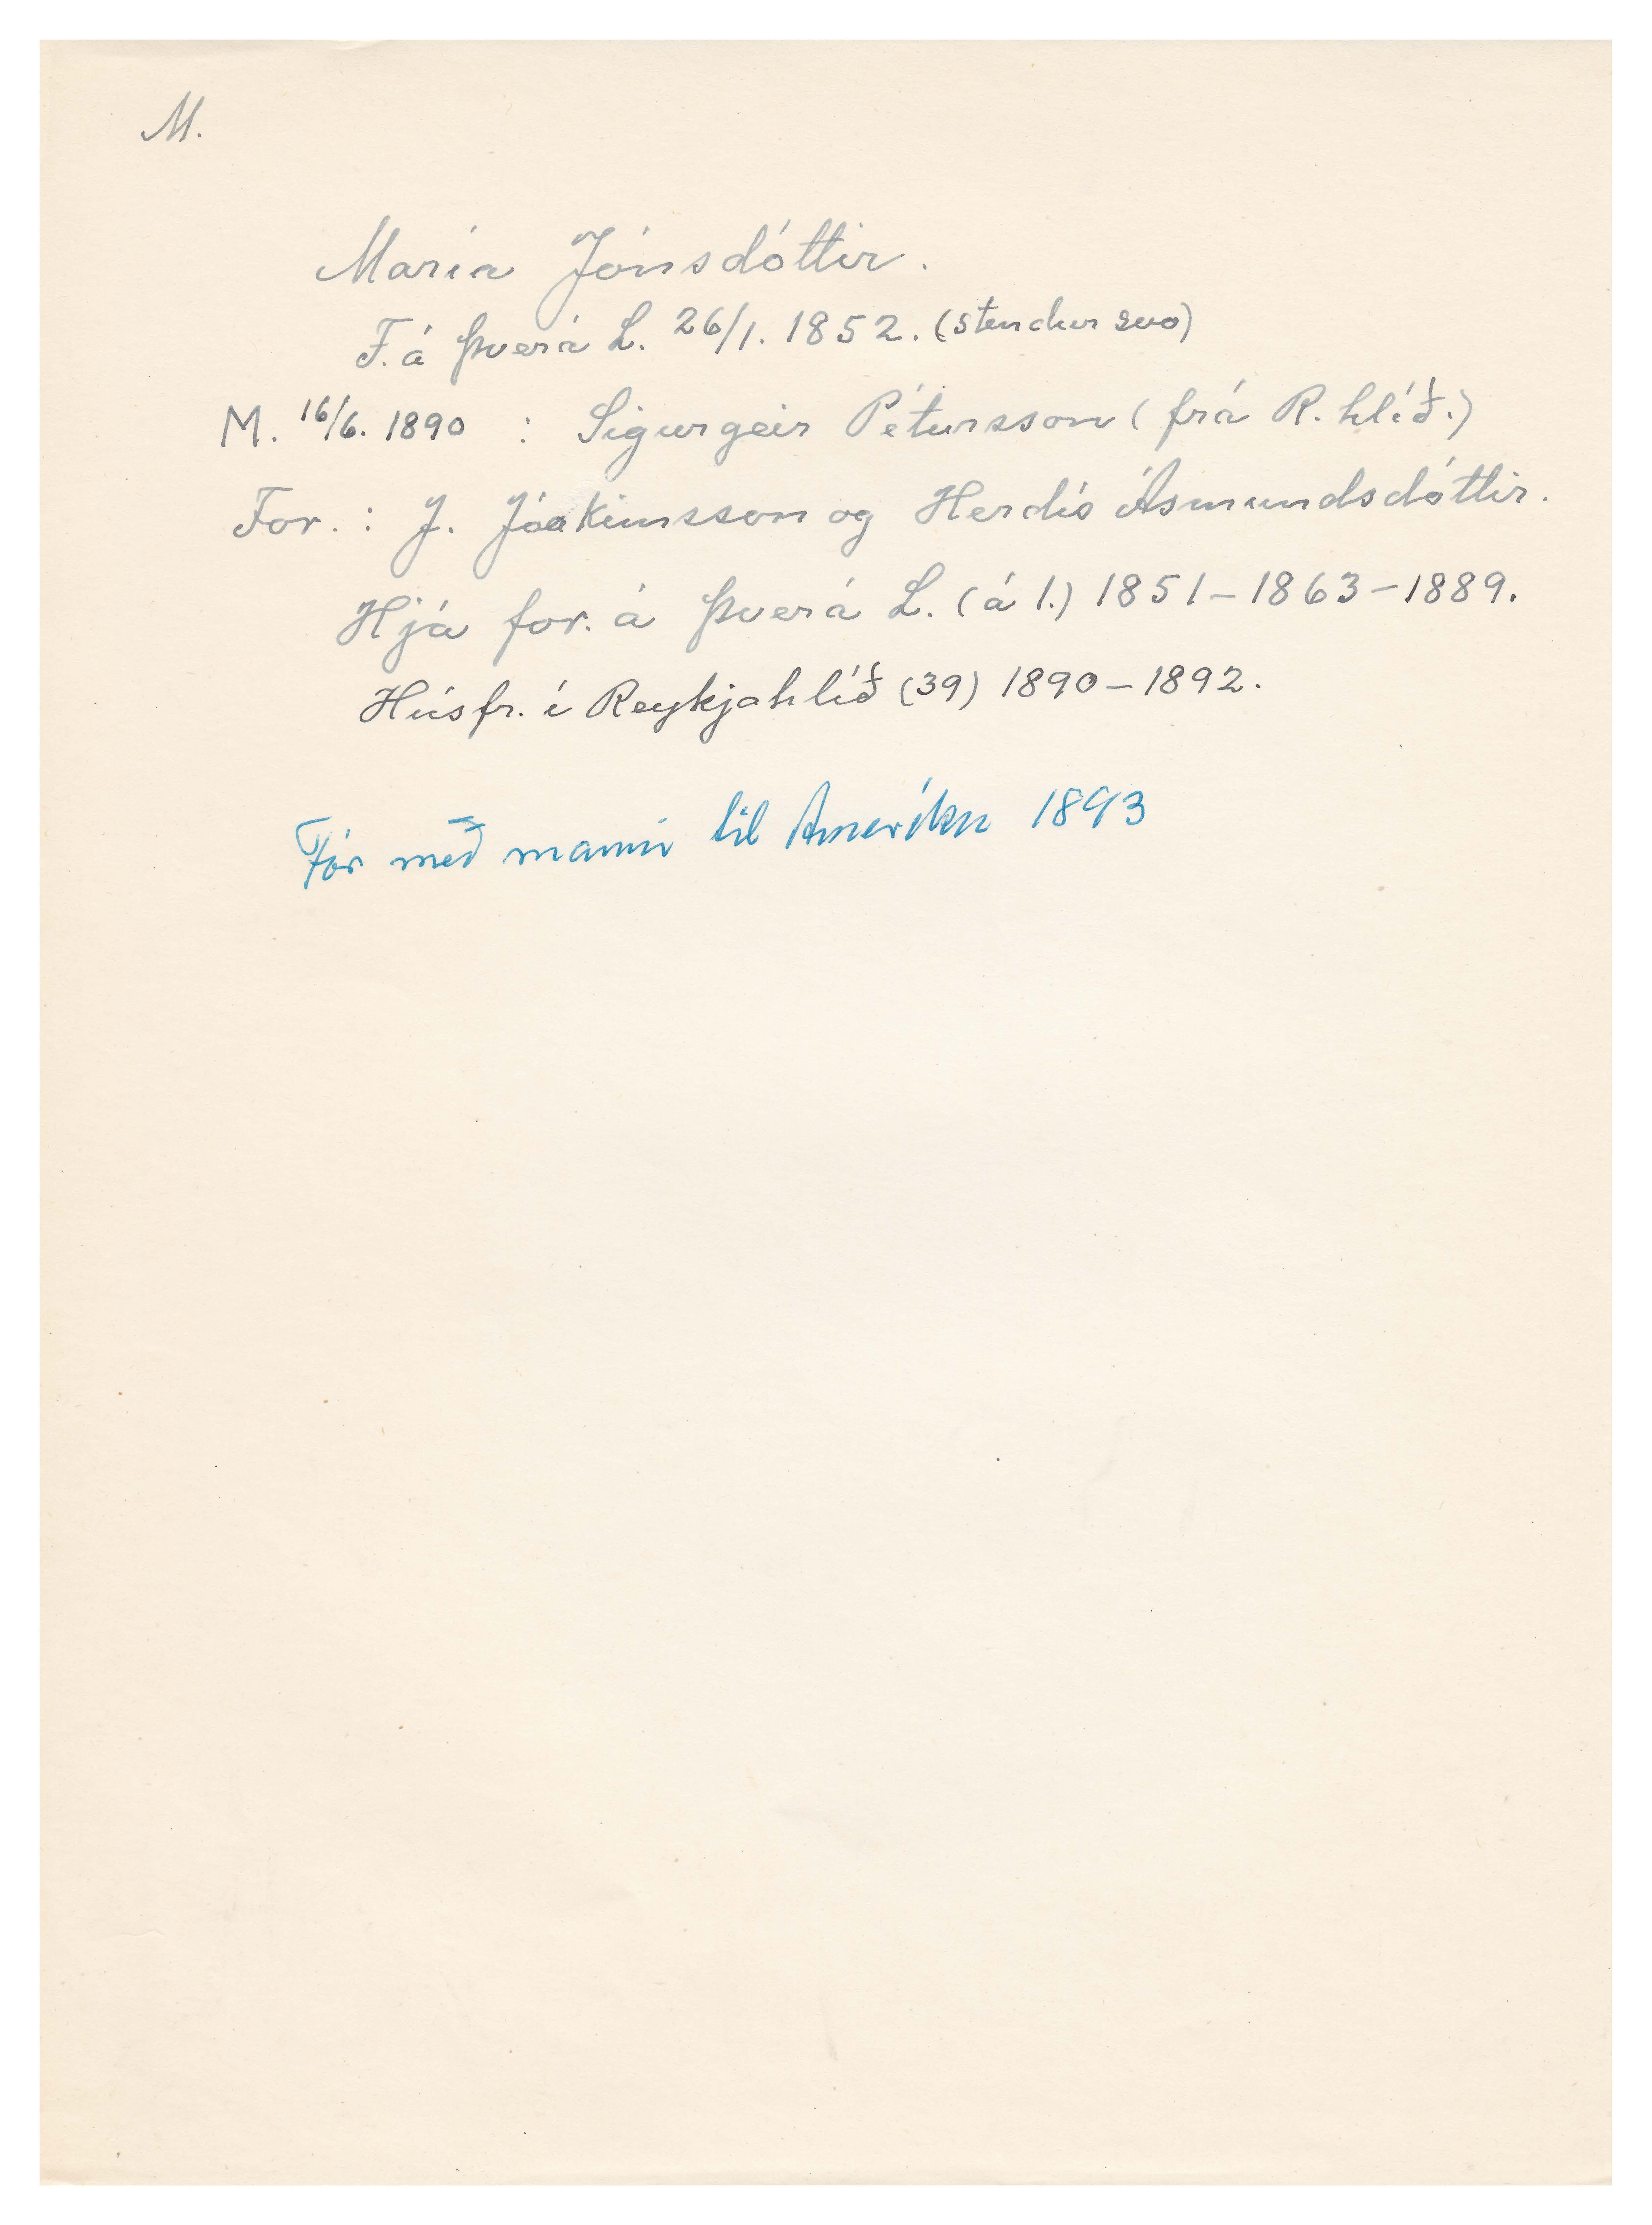 M.
María Jónsdóttir.
F. á Þverá L. 26/1. 1852. (stendur svo)
M. 16/6. 1890 : Sigurgeir Pétursson (frá R. hlíð.)
For. : J. Jóakimsson og Herdís Ásmundsdóttir.
Hjá for. á Þverá L. (á 1.) 1851 – 1863 – 1889.
Húsfr. í Reykjahlíð (39) 1890 – 1892.
Fór með manni til Ameríku 1893